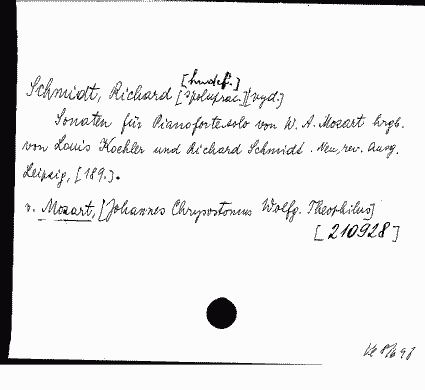 [hudef.]
Schmidt, Richard [spoluprac.][vyd.]
Sonaten für Pianoforte solo von W. A. Mozart hrgb.
von Louis Koehler und Richard Schmidt. Neu, rev. Ausg.
Leipzig, [189.].
v. Mozart, [Johannes Chrysostomus Wolfg. Theophilus]
[210928]